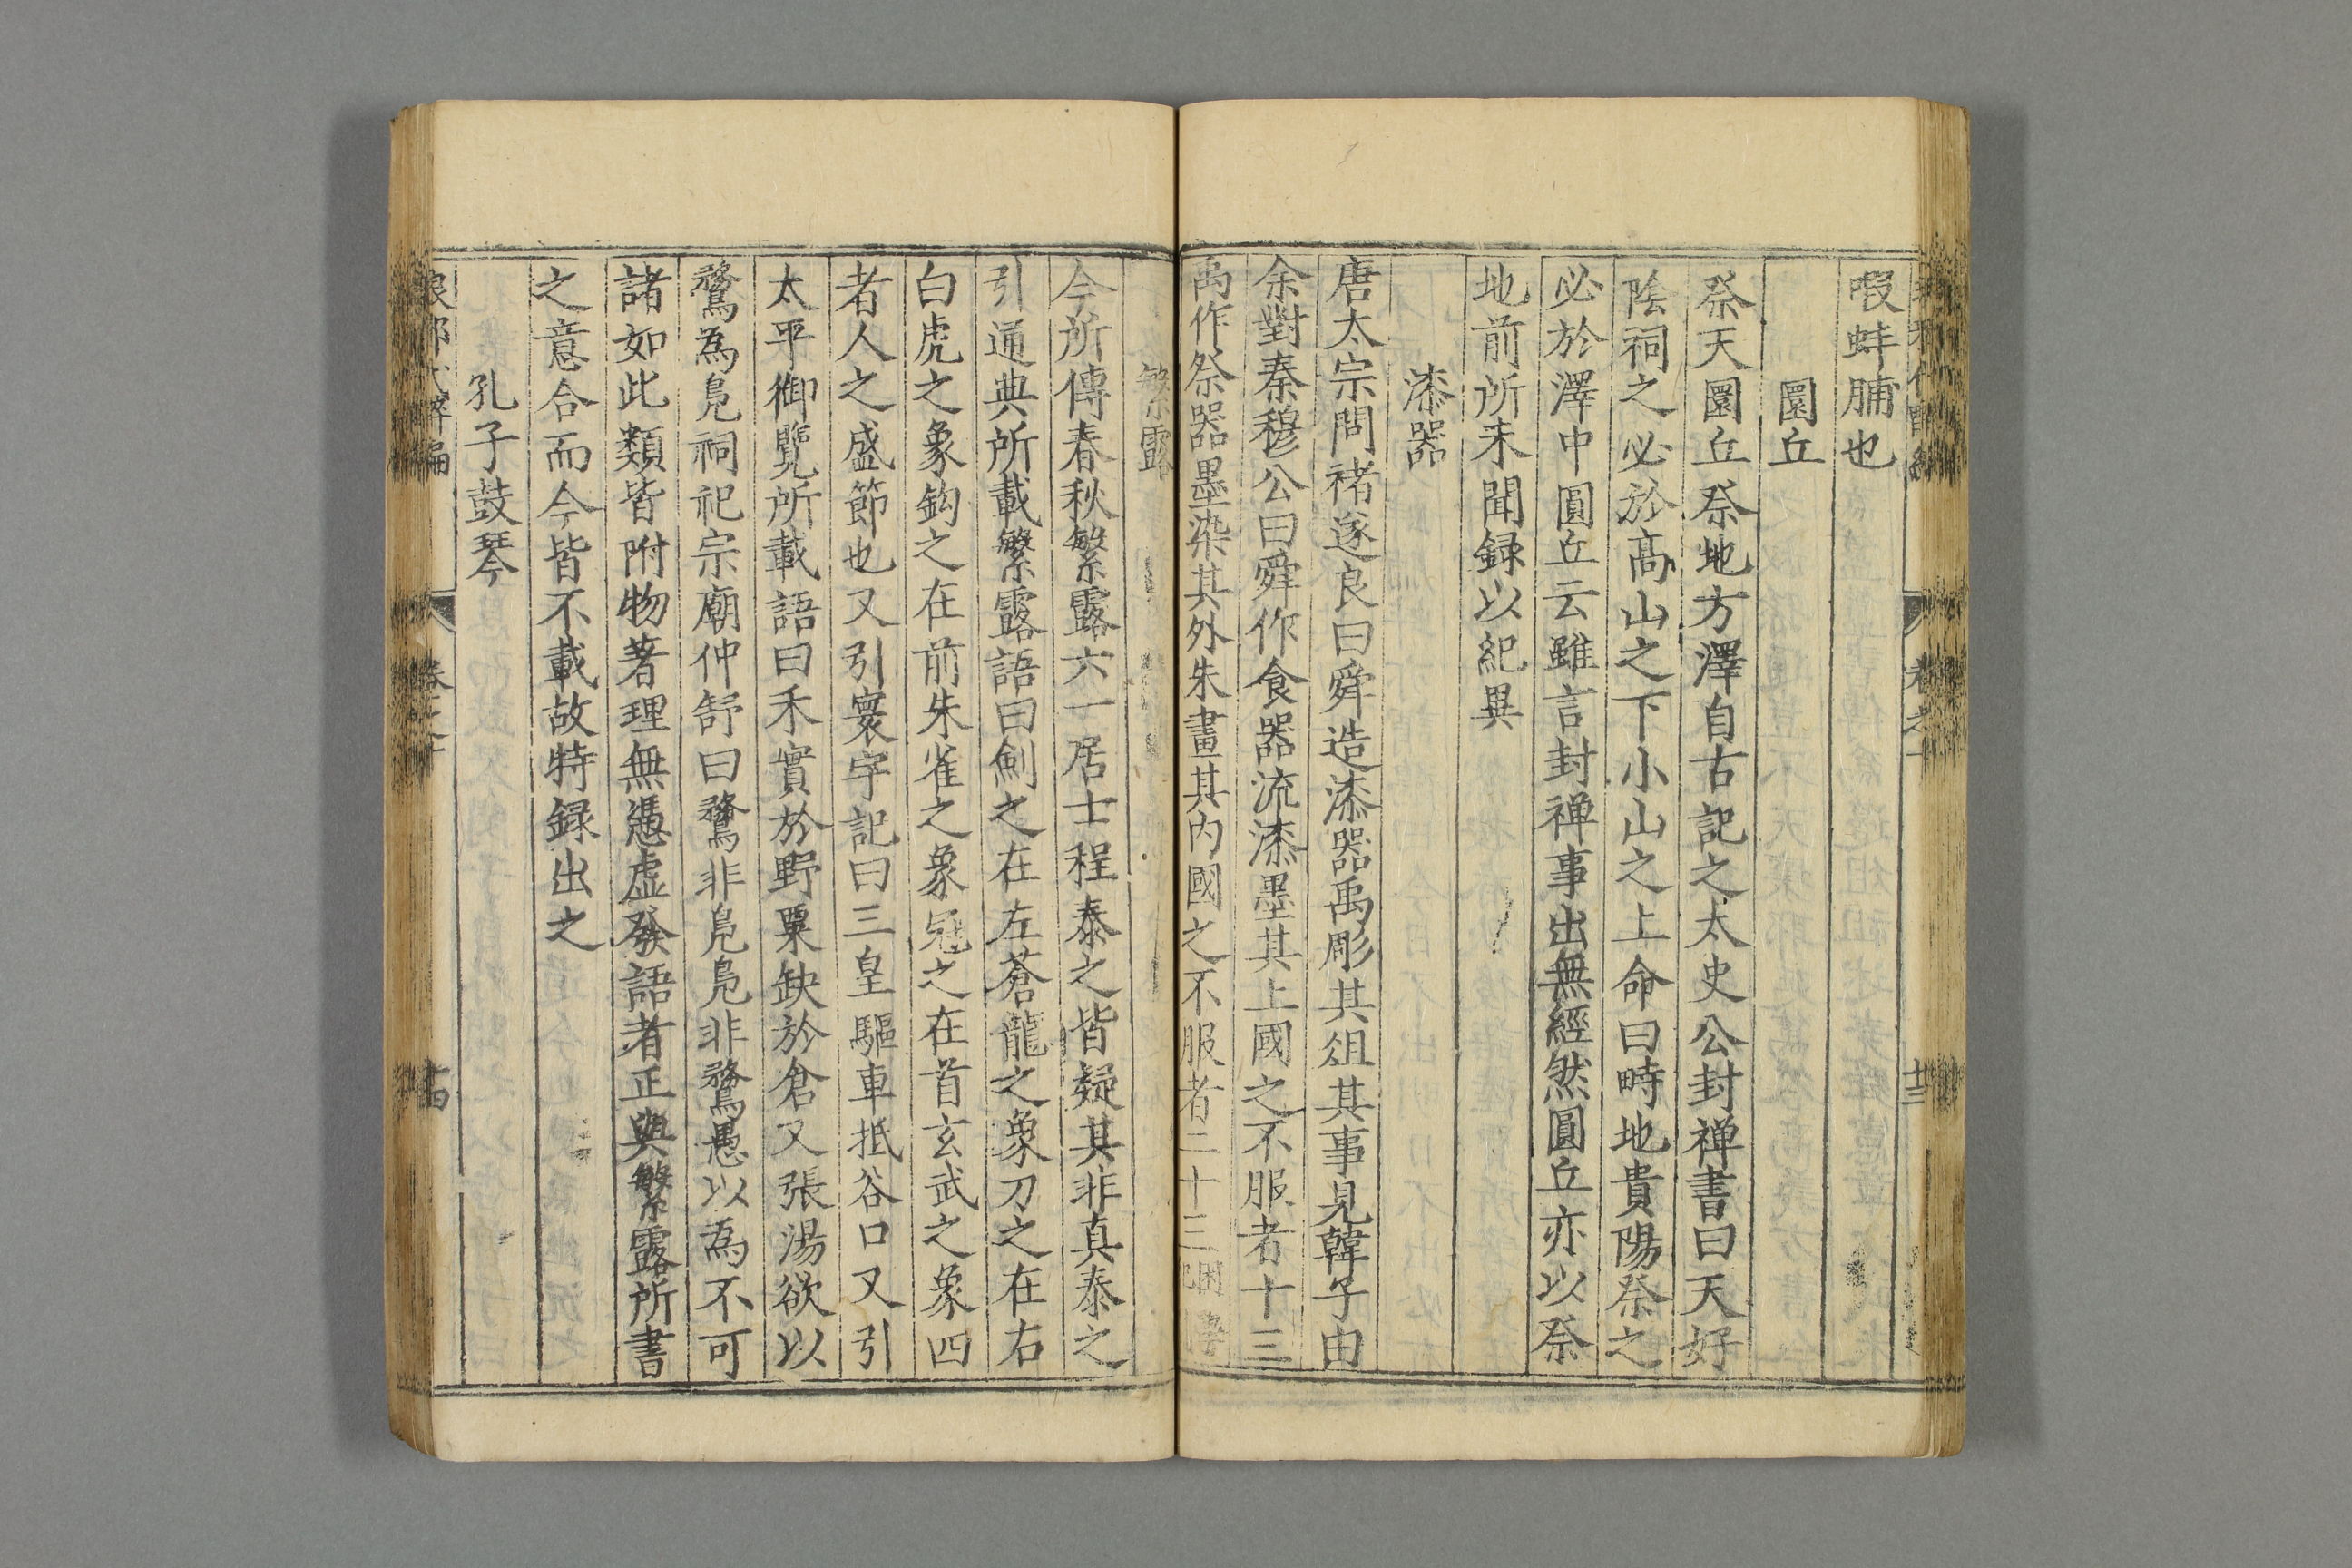 蝦蚌脯也
圜丘
祭天圜丘祭地方澤自古記之太史公封禅書曰天好
陰祠之必於髙山之下小山之上命曰畤地貴陽祭之
必於澤中圓丘云雖言封禅事出無經然圓丘亦以祭
地前所未聞録以紀異
漆器
唐太宗問褚遂良曰舜造漆器禹彫其俎其事見韓子由
余對秦穆公曰舜作食器流漆墨其上國之不服者十三
禹作祭器墨染其外朱畫其内國之不服者二十三
繁露
今所傳春秋繁露六一居士程泰之皆疑其非真泰之
引通典所載繁露語曰劍之在左蒼龍之象刀之在右
白虎之象鈎之在前朱雀之象冠之在首玄武之象四
者人之盛節也又引寰宇記曰三皇驅車抵谷口又引
太平御覽所載語曰禾實於野粟缺於倉又張湯欲以
鶩為鳬祠祀宗廟仲舒曰鶩非鳬鳬非鶩愚以為不可
諸如此類皆附物著理無憑虚發語者正與繁露所書
之意合而今皆不載故特録出之
孔子鼓琴
卷之十